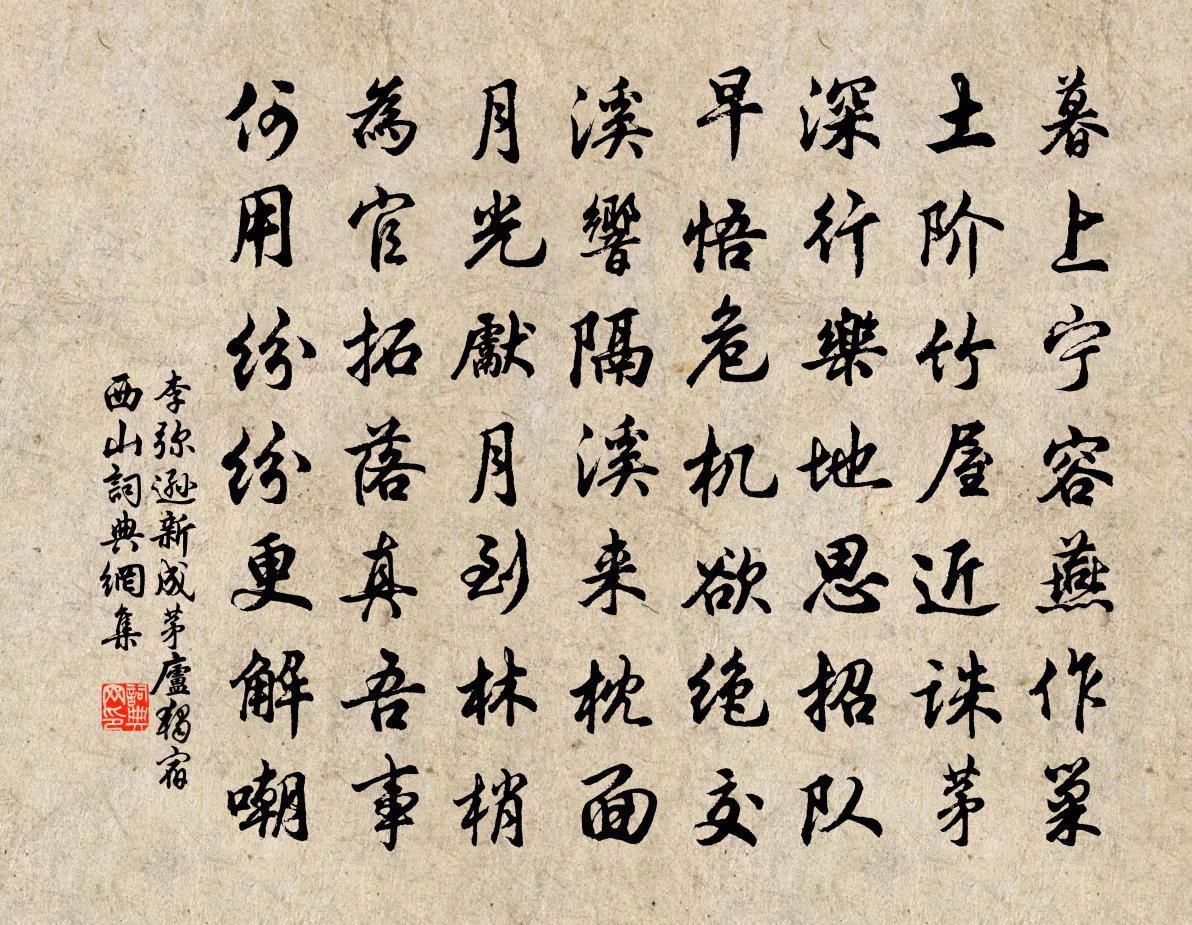 暮上宁容燕作巢
土阶竹屋近诛茅
深行樂地思招队
早悟危机欲绝交
溪響隔溪来枕面
月光獻月到林梢
為官拓落真吾事
何用纷纷更解嘲
李弥逊新成茅廬獨宿
西山詞典網集
詞典
网印